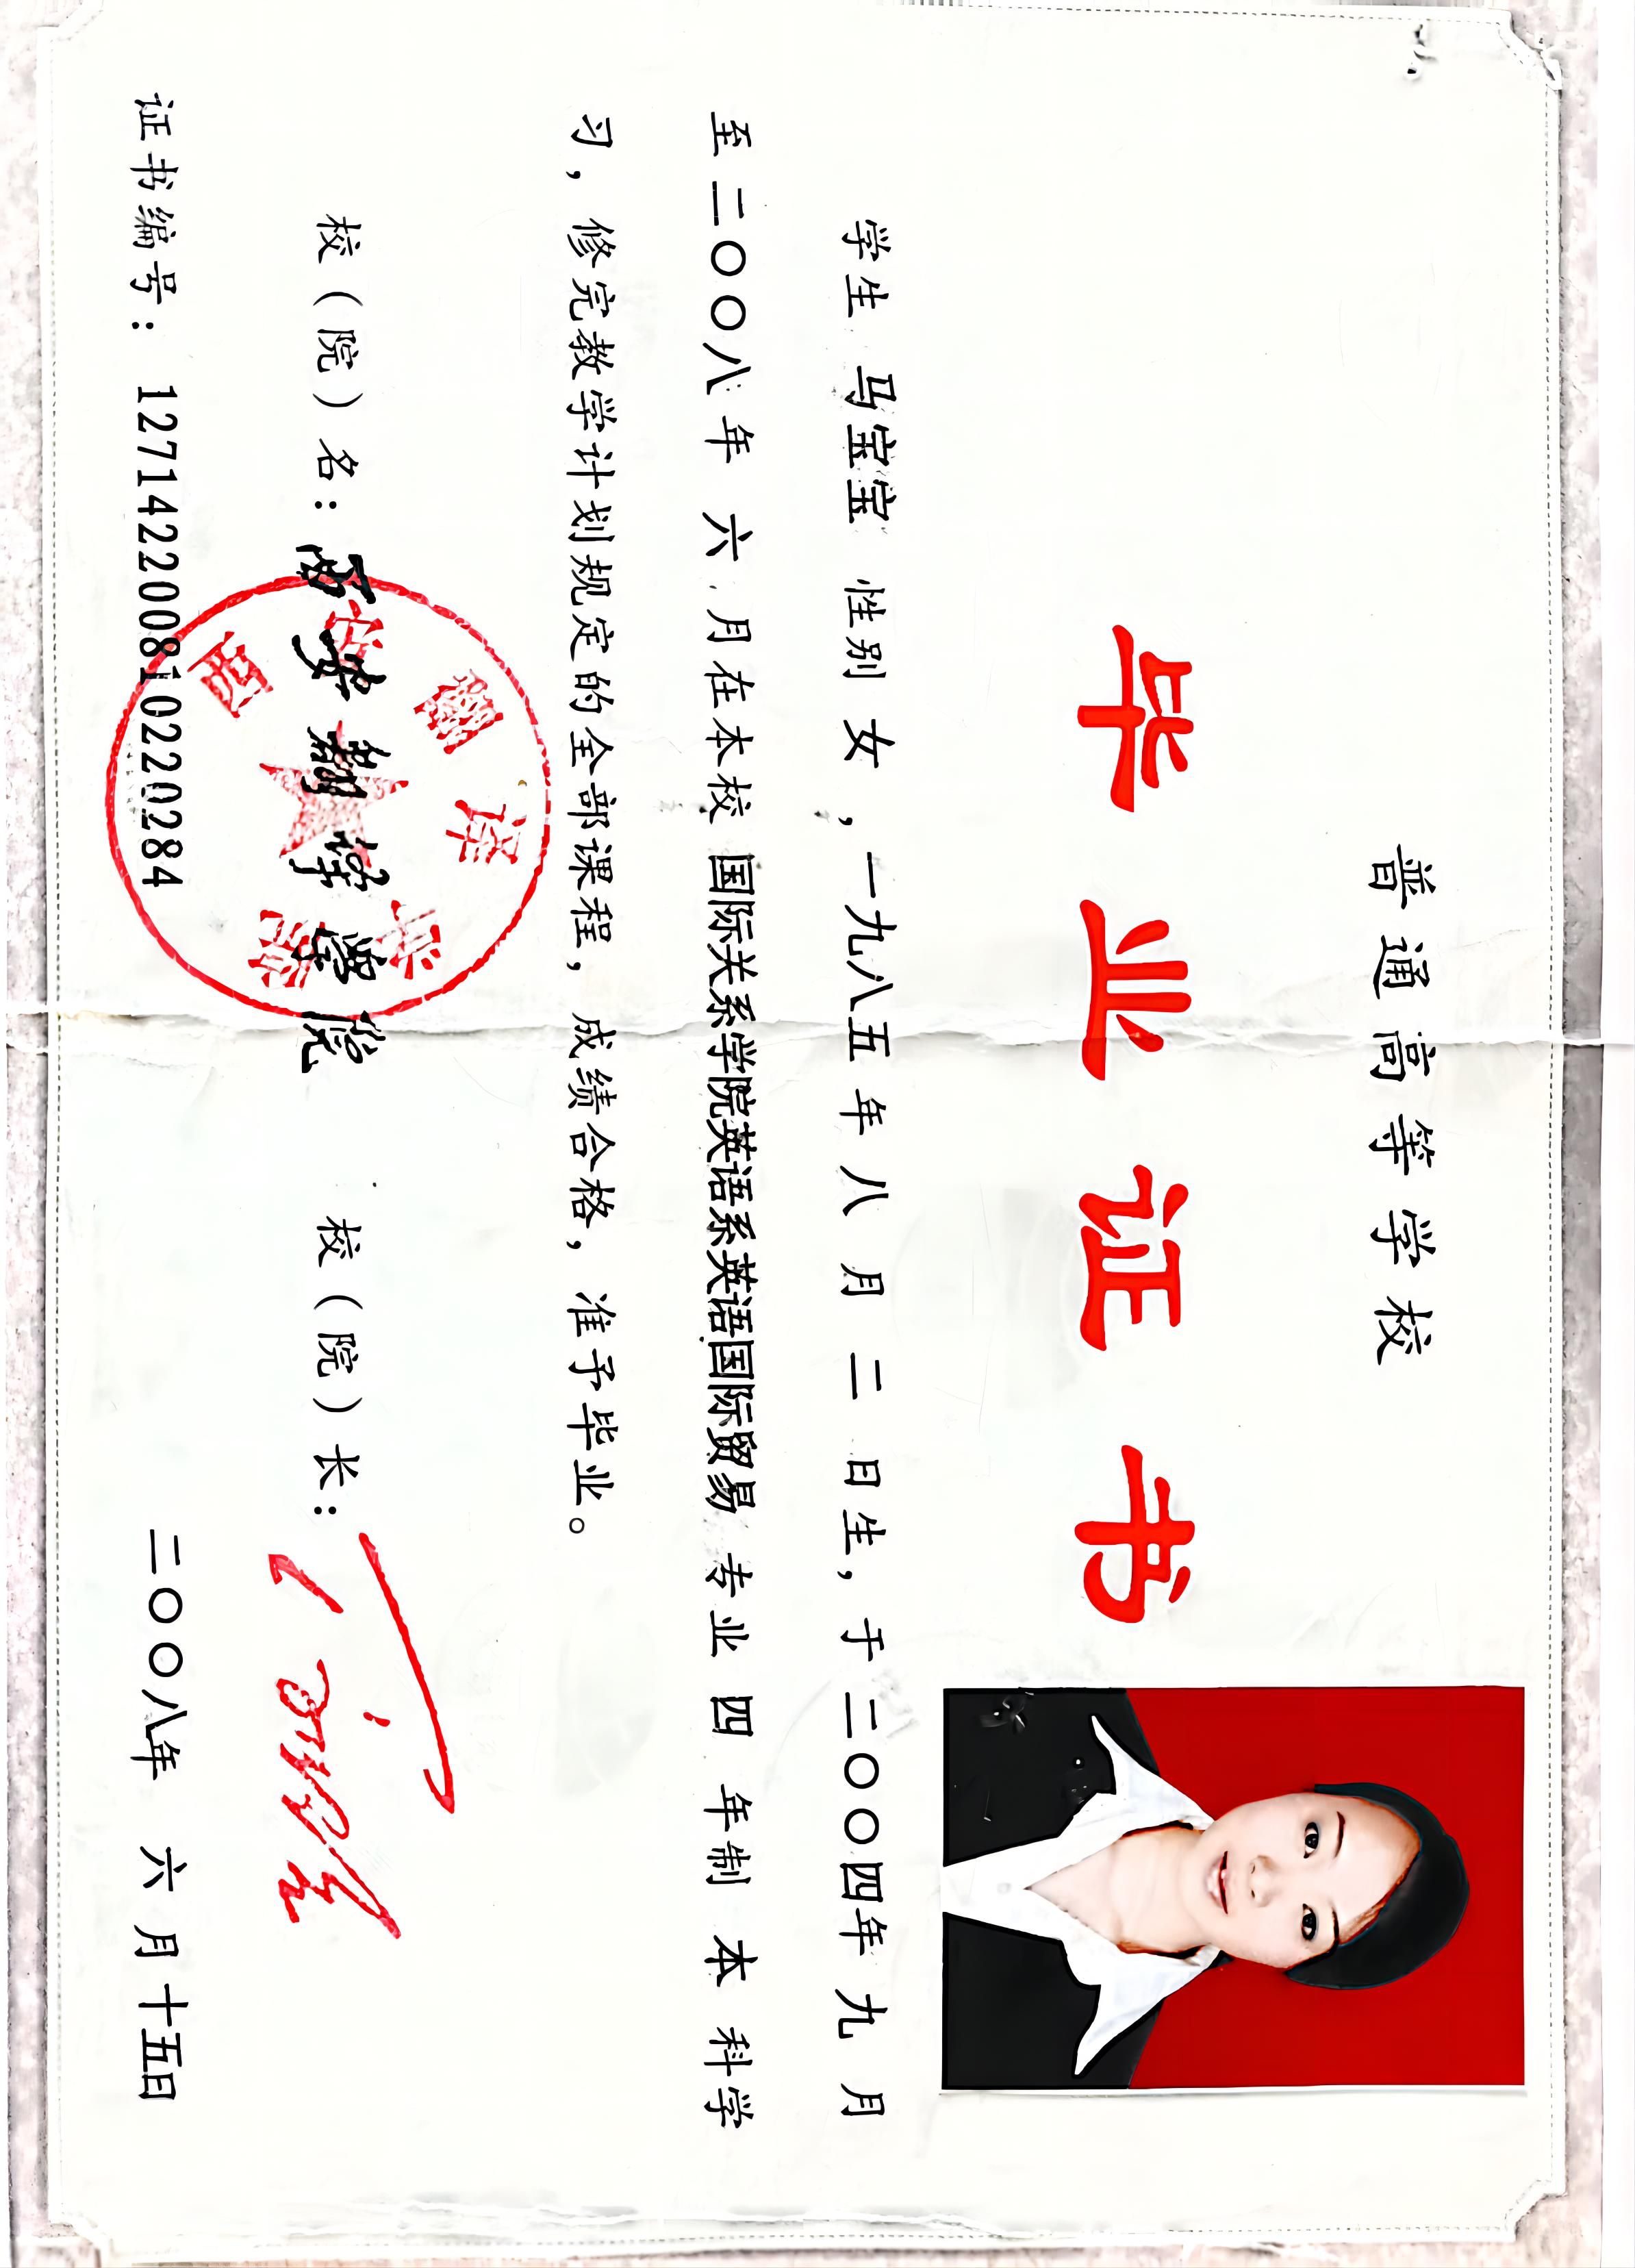 普通高等学校
毕业证书
学生 马宝宝 性别 女，一九八五年 八 月 二 日生，于 二〇〇四年 九 月
至 二〇〇八年 六 月在本校 国际关系学院英语系英语国际贸易 专业 四 年制 本 科学
习，修完教学计划规定的全部课程，成绩合格，准予毕业。
校（院）名：西安翻译学院 校（院）长：
西安翻译学院
证书编号：127142200810220284 二〇〇八年 六 月十五日